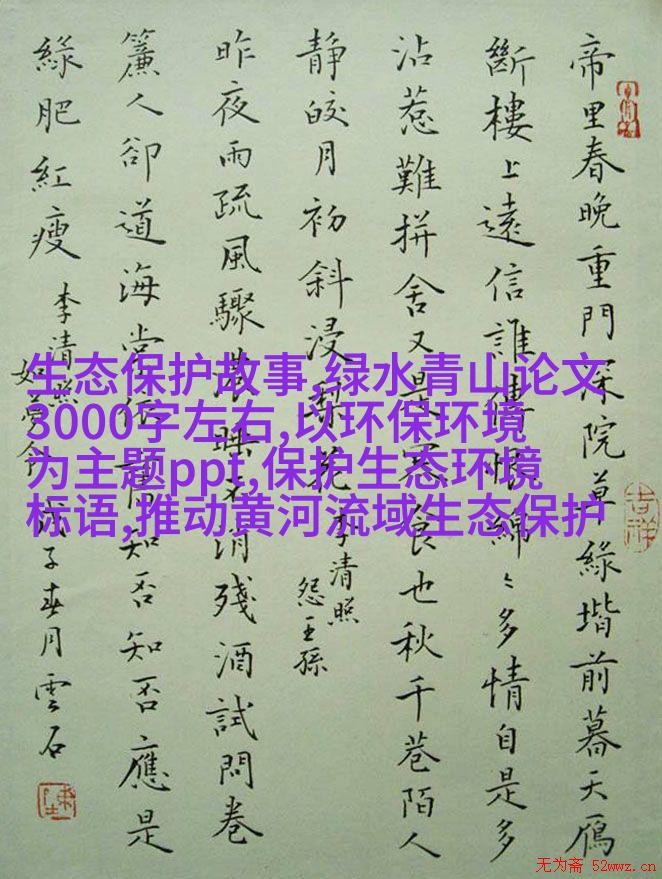 帝里春晚重門深院草綠堦前暮天鴈
斷樓上遠信誰傳恨綿〻多情自是多
沾惹難拼舍又是寒食也秋千巷陌人
靜皎月初斜浸梨花 李清照
怨王孫
昨夜雨疏風驟濃睡不消殘酒試問卷
簾人卻道海棠依舊知否知否應是
綠肥紅瘦 李清照
如夢令 戊子春月雲石
吉祥
生态保护故事,绿水青山论文
3000字左右,以环保环境
为主题ppt,保护生态环境
标语,推动黄河流域生态保护
无为斋 52wwz.cn